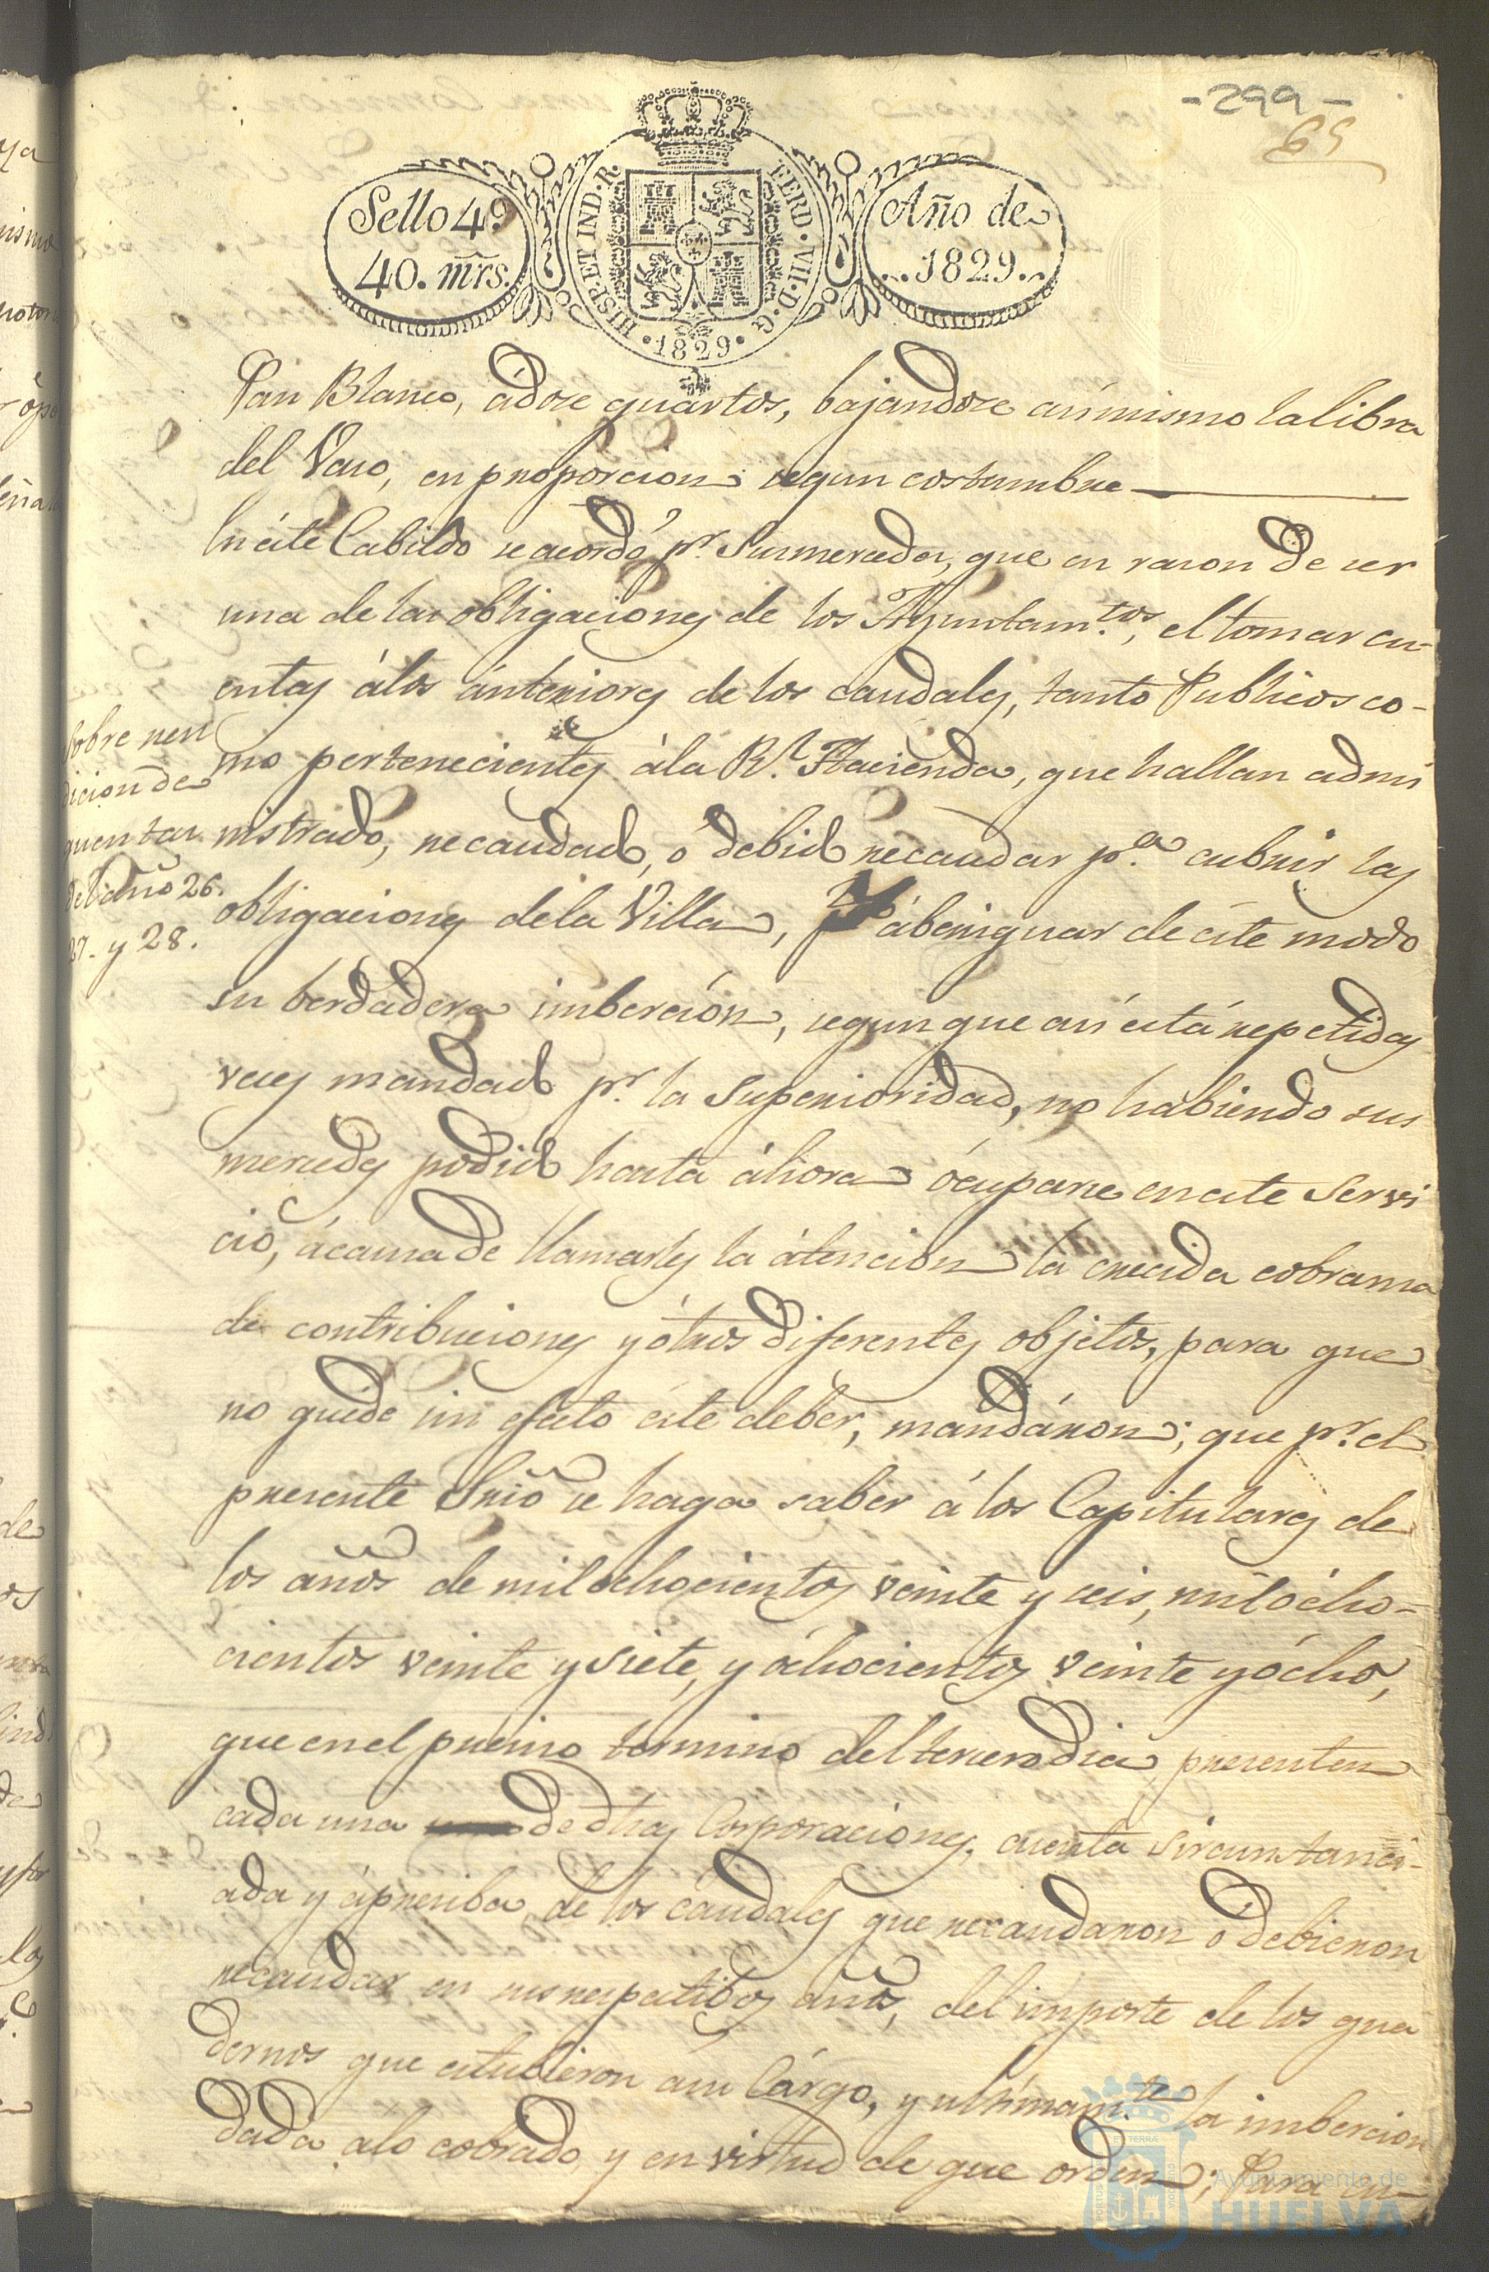 -299-
65
Sello 4º
40. mrs.
HISP. ET IND. R.
FERD. VII. D. G.
1829
Año de
1829.
Pan Blanco, ádose quartos, bajandose asimismo la libra
del Vaso, en proporcion segun costumbre
En éste Cabildo se acordó pr. Susmercedes, que en rason de ser
una de las obligaciones de los Ayuntam.tos, el tomar cu-
entas álos ánteriores de los caudales, tanto Publicos co-
mo pertenecientes ála Rl. Hacienda, que hallan admi
nistrado, recaudado, ó debido recaudar pa. cubrir las
obligaciones dela Villa, pa ábeniguar de éste modo
su berdadera imberción, segun que así está repetidas
veces mandado pr. la Superioridad, no habiendo sus
mercedes podido hasta áhora ócuparse en este Servi
ció, ácausa de llamarles la átencion la crecida cobransa
de contribuciones y ótros diferentes objetos, para que
no quede sin efecto éste deber, mandáron; que pr. el
presente Srio se haga saber á los Capitulares de
los años de mil ochocientos veinte y seis, mil ócho-
cientos veinte y siete, y óchocientos veinte y ócho,
que en el presiso termino del tercero dia presenten
cada una de dhas Corporaciones, cuenta Sircunstanci-
ada y ápresiba de los caudales que recaudaron ó debieron
recaudar en sus respectibos años, del importe de los qua
dernos que estubieron asu Cárgo, y ultimamte la imbercion
dada alo cobrado y en virtud de que orden; Para cu-
Sobre ren
dicion de
quentas
del año 26.
27. y 28.
Ayuntamiento de
HUELVA